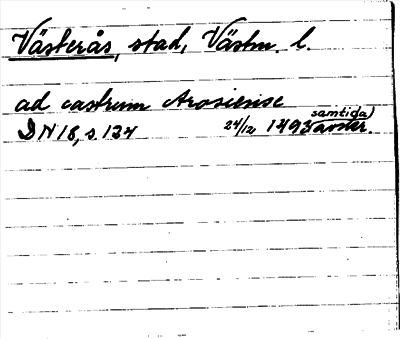 Västerås, stad, Västm. l.
ad castrum Arosiense
samtida)
DN 18, s 134 24/12 1493 avskr.